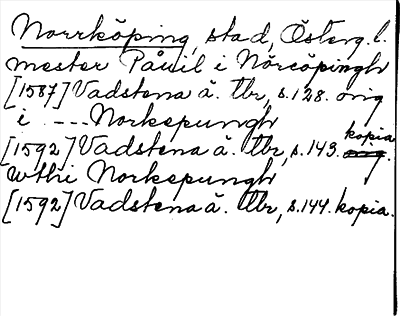 Norrköping, stad, Österg. l.
mester Påuil i Nörcöpingh
[1587] Vadstena ä. tbr, s. 128. orig
i ---- Norkepungh
[1592] Vadstena ä. tbr, s. 143. kopia
wthi Norkepungh
[1592] Vadstena ä. tbr, s. 144. kopia.